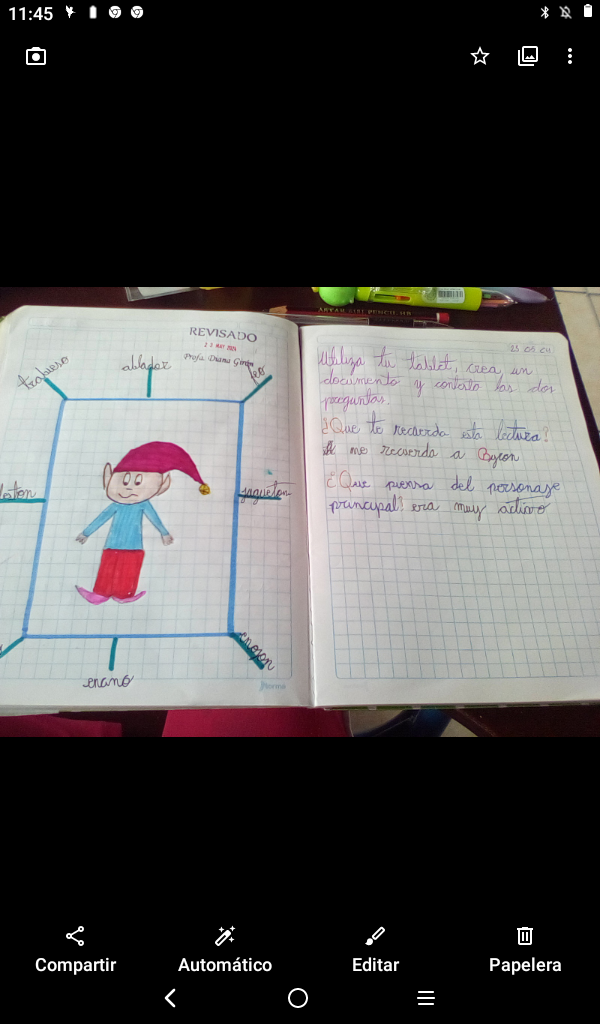 11:45
REVISADO
2 3 MAY 2024
Profa. Diana Girón
ablador
feo
jugueton
enojon
enano
norma
23 05 24
Utiliza tu tablet, crea un
documento y contesta las dos
preguntas.
¿Que te recuerda esta lectura?
A me recuerda a Byron
¿Que piensa del personaje
principal? era muy activo
Compartir
Automático
Editar
Papelera